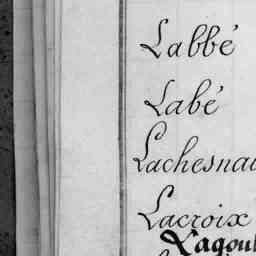 Labbé
Labé
Lachesnai
Lacroix
Lagoul